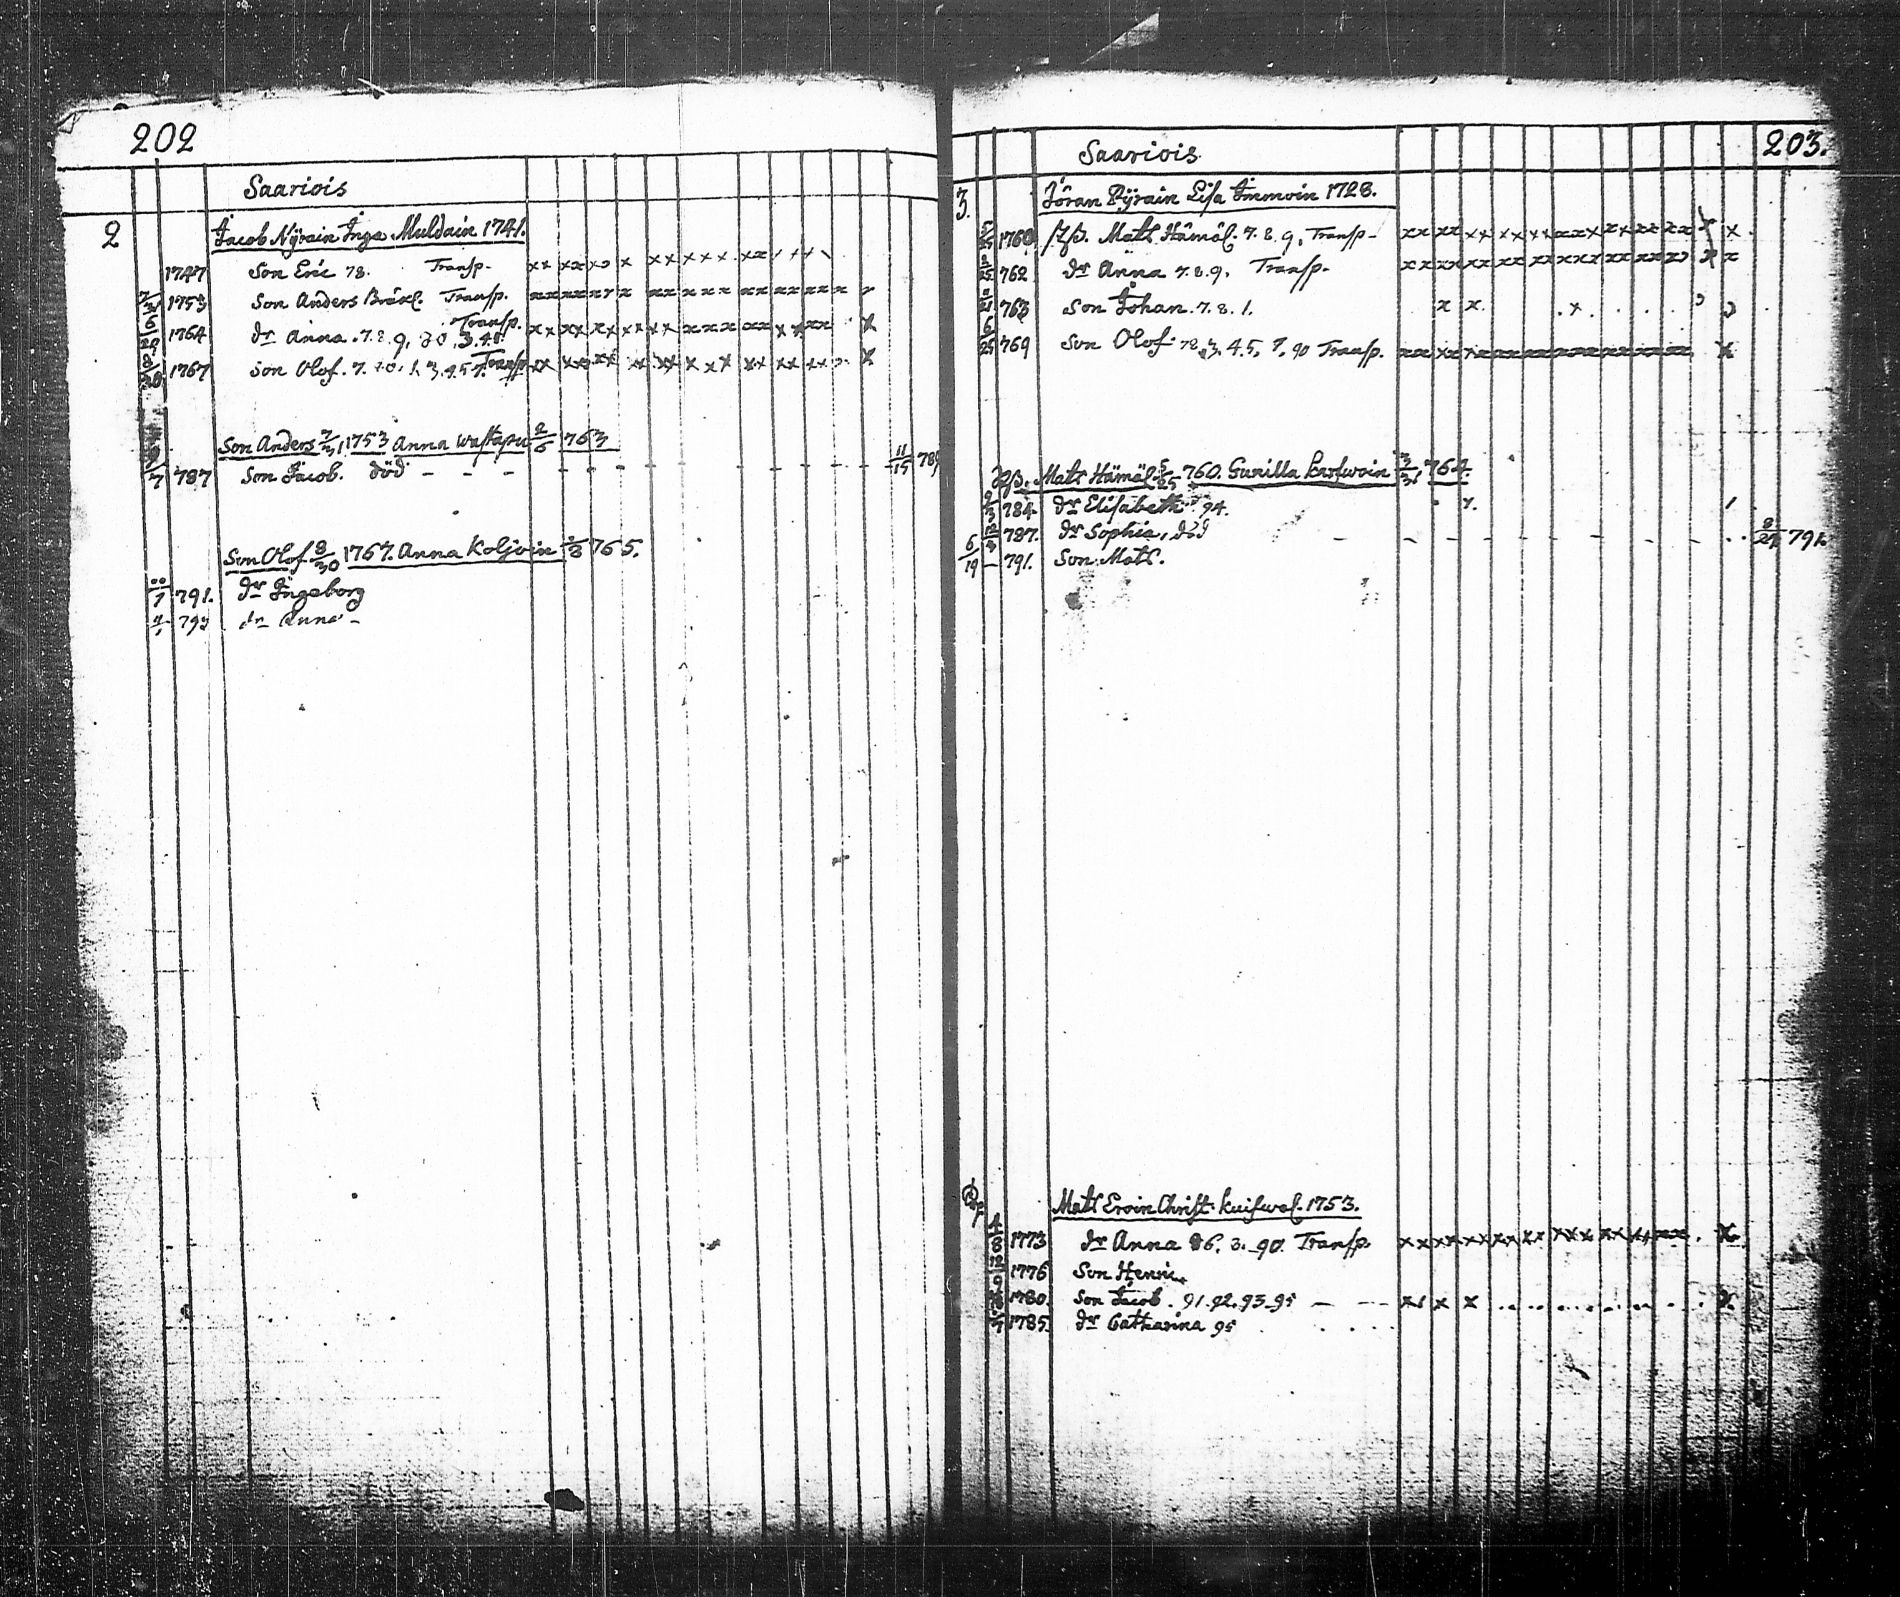 202
Saariois
2 Jacob Nÿrain Inga Muldain 1741.
1747 Son Eric 78. Transp.
7/31 1753 Son Anders Bräkl. Transp.
6/29 1764 dr Anna. 7.8.9, 80, 3.48. Transp.
8/30 1767 Son Olof. 7. 1. 3. 4. 5 7. Transp
Son Anders 7/31 1753 Anna Wastapu 2/6 763
9/7 787 Son Jacob. död - - - 11/15 789
Son Olof. 8/30 1767. Anna Koljoin 765.
791. dr Ingeborg
dr Anna -
203.
Saariois
3. Jöran Pÿräin Lisa Immoin 1728.
5/25 1760 Mats Hämäl. 7. 8. 9, Transp-
2/25 762 dr Anna 7. 8. 9. Transp.
763 Son Johan. 7. 8. 1.
6/25 769 Son Olof 78, 3. 4. 5, 7, 90 Transp.
Mats Hämäl. 5/25 760. Gunilla 3/31 764.
9/3 784 dr Elisabeth 94.
12/9 787. dr Sophia, död - - - 8/24 791
6/19 - 791. Son Mats.
Mats Eroin Christ. Kuiswal. 1753.
4/8 1773 dr Anna 86. 3. 90. Transp.
12/9 1776 Son Henric
1780. Son Jacob. 91. 92. 93. 95 - -
1785. dr Catharina 95